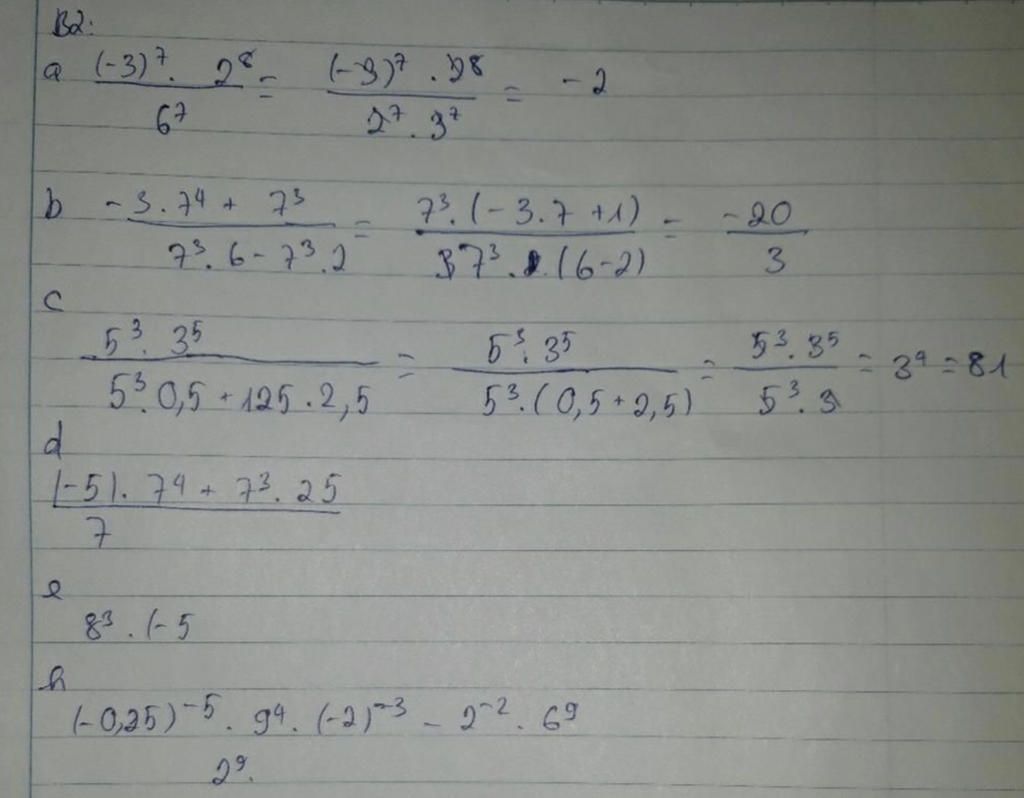 B2:
a (-3)⁷. 2⁸ / 6⁷ = (-3)⁷ . 28 / 2⁷ . 3⁷ = -2
b -3.7⁴ + 7³ / 7³.6 - 7³.2 = 7³.(-3.7+1) / 7³. (6-2) = -20 / 3
c
5³. 3⁵ / 5³.0,5 + 125.2,5 = 5³.3⁵ / 5³.(0,5+2,5) = 5³.3⁵ / 5³.3 = 3⁴ = 81
d
(-5). 7⁴ + 7³. 25 / 7
e
8³ . (-5
h
(-0,25)⁻⁵ . 9⁴ . (-2)⁻³ - 2⁻² . 6⁹
2⁹.